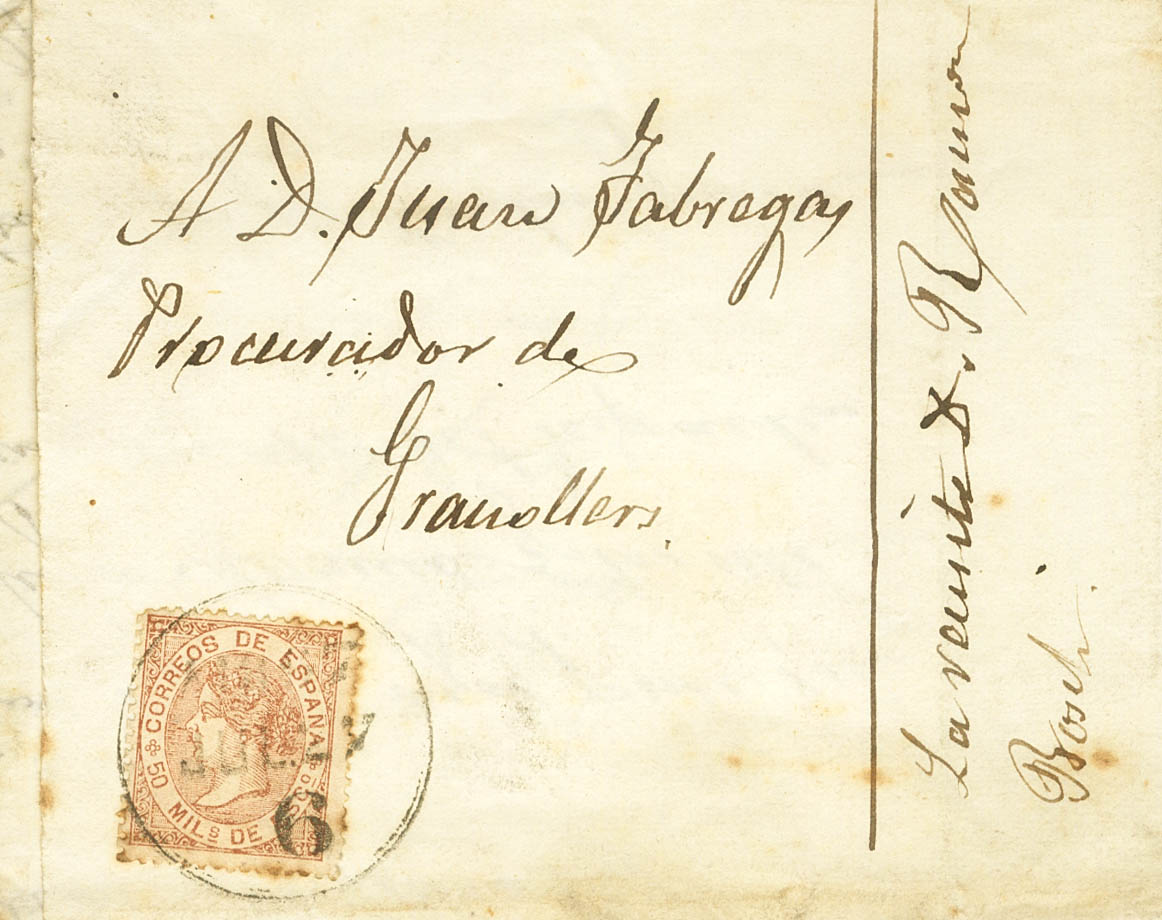 A D. Juan Fabregas
Procurador de
Granollers.
La remite D. Ramon
Bosch.
CORREOS DE ESPAÑA
50 MILS DE
6